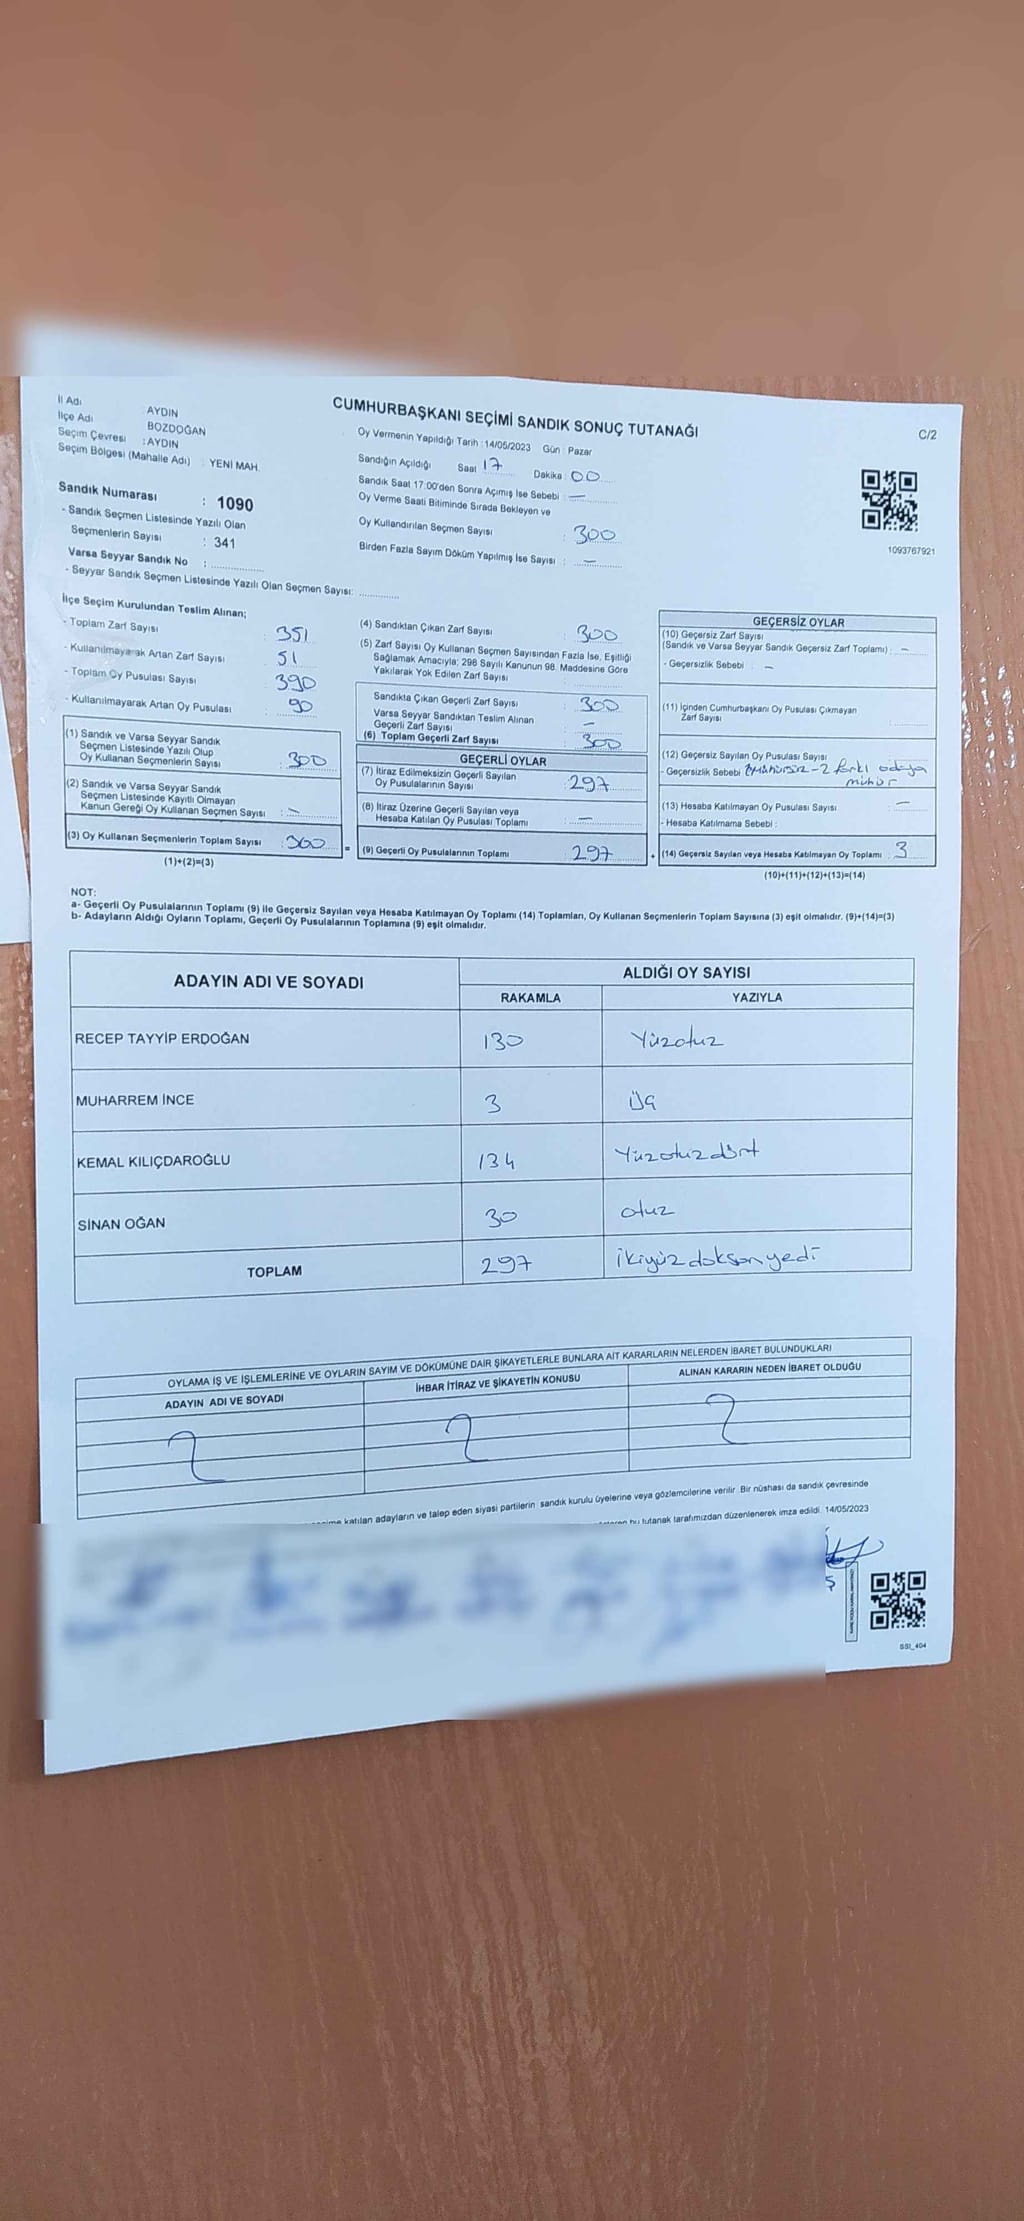 İl Adı : AYDIN
İlçe Adı : BOZDOĞAN
Seçim Çevresi : AYDIN
Seçim Bölgesi (Mahalle Adı) : YENİ MAH.
Sandık Numarası : 1090
- Sandık Seçmen Listesinde Yazılı Olan
Seçmenlerin Sayısı : 341
Varsa Seyyar Sandık No :
- Seyyar Sandık Seçmen Listesinde Yazılı Olan Seçmen Sayısı:
CUMHURBAŞKANI SEÇİMİ SANDIK SONUÇ TUTANAĞI
C/2
Oy Vermenin Yapıldığı Tarih : 14/05/2023 Gün : Pazar
Sandığın Açıldığı Saat 17 Dakika : 00
Sandık Saat 17:00'den Sonra Açımış İse Sebebi : —
Oy Verme Saati Bitiminde Sırada Bekleyen ve
Oy Kullandırılan Seçmen Sayısı : 300
Birden Fazla Sayım Döküm Yapılmış İse Sayısı : —
1093767921
İlçe Seçim Kurulundan Teslim Alınan;
- Toplam Zarf Sayısı : 351
- Kullanılmayarak Artan Zarf Sayısı : 51
- Toplam Oy Pusulası Sayısı : 390
- Kullanılmayarak Artan Oy Pusulası : 90
(1) Sandık ve Varsa Seyyar Sandık
Seçmen Listesinde Yazılı Olup
Oy Kullanan Seçmenlerin Sayısı : 300
(2) Sandık ve Varsa Seyyar Sandık
Seçmen Listesinde Kayıtlı Olmayan
Kanun Gereği Oy Kullanan Seçmen Sayısı : —
(3) Oy Kullanan Seçmenlerin Toplam Sayısı : 300 =
(1)+(2)=(3)
(4) Sandıktan Çıkan Zarf Sayısı : 300
(5) Zarf Sayısı Oy Kullanan Seçmen Sayısından Fazla İse, Eşitliği
Sağlamak Amacıyla; 298 Sayılı Kanunun 98. Maddesine Göre
Yakılarak Yok Edilen Zarf Sayısı :
Sandıkta Çıkan Geçerli Zarf Sayısı : 300
Varsa Seyyar Sandıktan Teslim Alınan
Geçerli Zarf Sayısı : —
(6) Toplam Geçerli Zarf Sayısı : 300
GEÇERLİ OYLAR
(7) İtiraz Edilmeksizin Geçerli Sayılan
Oy Pusulalarının Sayısı : 297
(8) İtiraz Üzerine Geçerli Sayılan veya
Hesaba Katılan Oy Pusulası Toplamı : —
(9) Geçerli Oy Pusulalarının Toplamı : 297 +
GEÇERSİZ OYLAR
(10) Geçersiz Zarf Sayısı
(Sandık ve Varsa Seyyar Sandık Geçersiz Zarf Toplamı) : —
- Geçersizlik Sebebi : —
(11) İçinden Cumhurbaşkanı Oy Pusulası Çıkmayan
Zarf Sayısı :
(12) Geçersiz Sayılan Oy Pusulası Sayısı :
- Geçersizlik Sebebi : -2 farklı adaya
mühür
(13) Hesaba Katılmayan Oy Pusulası Sayısı : —
- Hesaba Katılmama Sebebi :
(14) Geçersiz Sayılan veya Hesaba Katılmayan Oy Toplamı : 3
(10)+(11)+(12)+(13)=(14)
NOT:
a- Geçerli Oy Pusulalarının Toplamı (9) ile Geçersiz Sayılan veya Hesaba Katılmayan Oy Toplamı (14) Toplamları, Oy Kullanan Seçmenlerin Toplam Sayısına (3) eşit olmalıdır. (9)+(14)=(3)
b- Adayların Aldığı Oyların Toplamı, Geçerli Oy Pusulalarının Toplamına (9) eşit olmalıdır.
ADAYIN ADI VE SOYADI ALDIĞI OY SAYISI
RAKAMLA YAZIYLA
RECEP TAYYİP ERDOĞAN 130 Yüzotuz
MUHARREM İNCE 3 Üç
KEMAL KILIÇDAROĞLU 134 Yüzotuzdört
SİNAN OĞAN 30 otuz
TOPLAM 297 ikiyüzdoksanyedi
OYLAMA İŞ VE İŞLEMLERİNE VE OYLARIN SAYIM VE DÖKÜMÜNE DAİR ŞİKAYETLERLE BUNLARA AİT KARARLARIN NELERDEN İBARET BULUNDUKLARI
ADAYIN ADI VE SOYADI İHBAR İTİRAZ VE ŞİKAYETİN KONUSU ALINAN KARARIN NEDEN İBARET OLDUĞU
katılan adayların ve talep eden siyasi partilerin sandık kurulu üyelerine veya gözlemcilerine verilir. Bir nüshası da sandık çevresinde
bu tutanak tarafımızdan düzenlenerek imza edildi. 14/05/2023
Ş
SSI_404